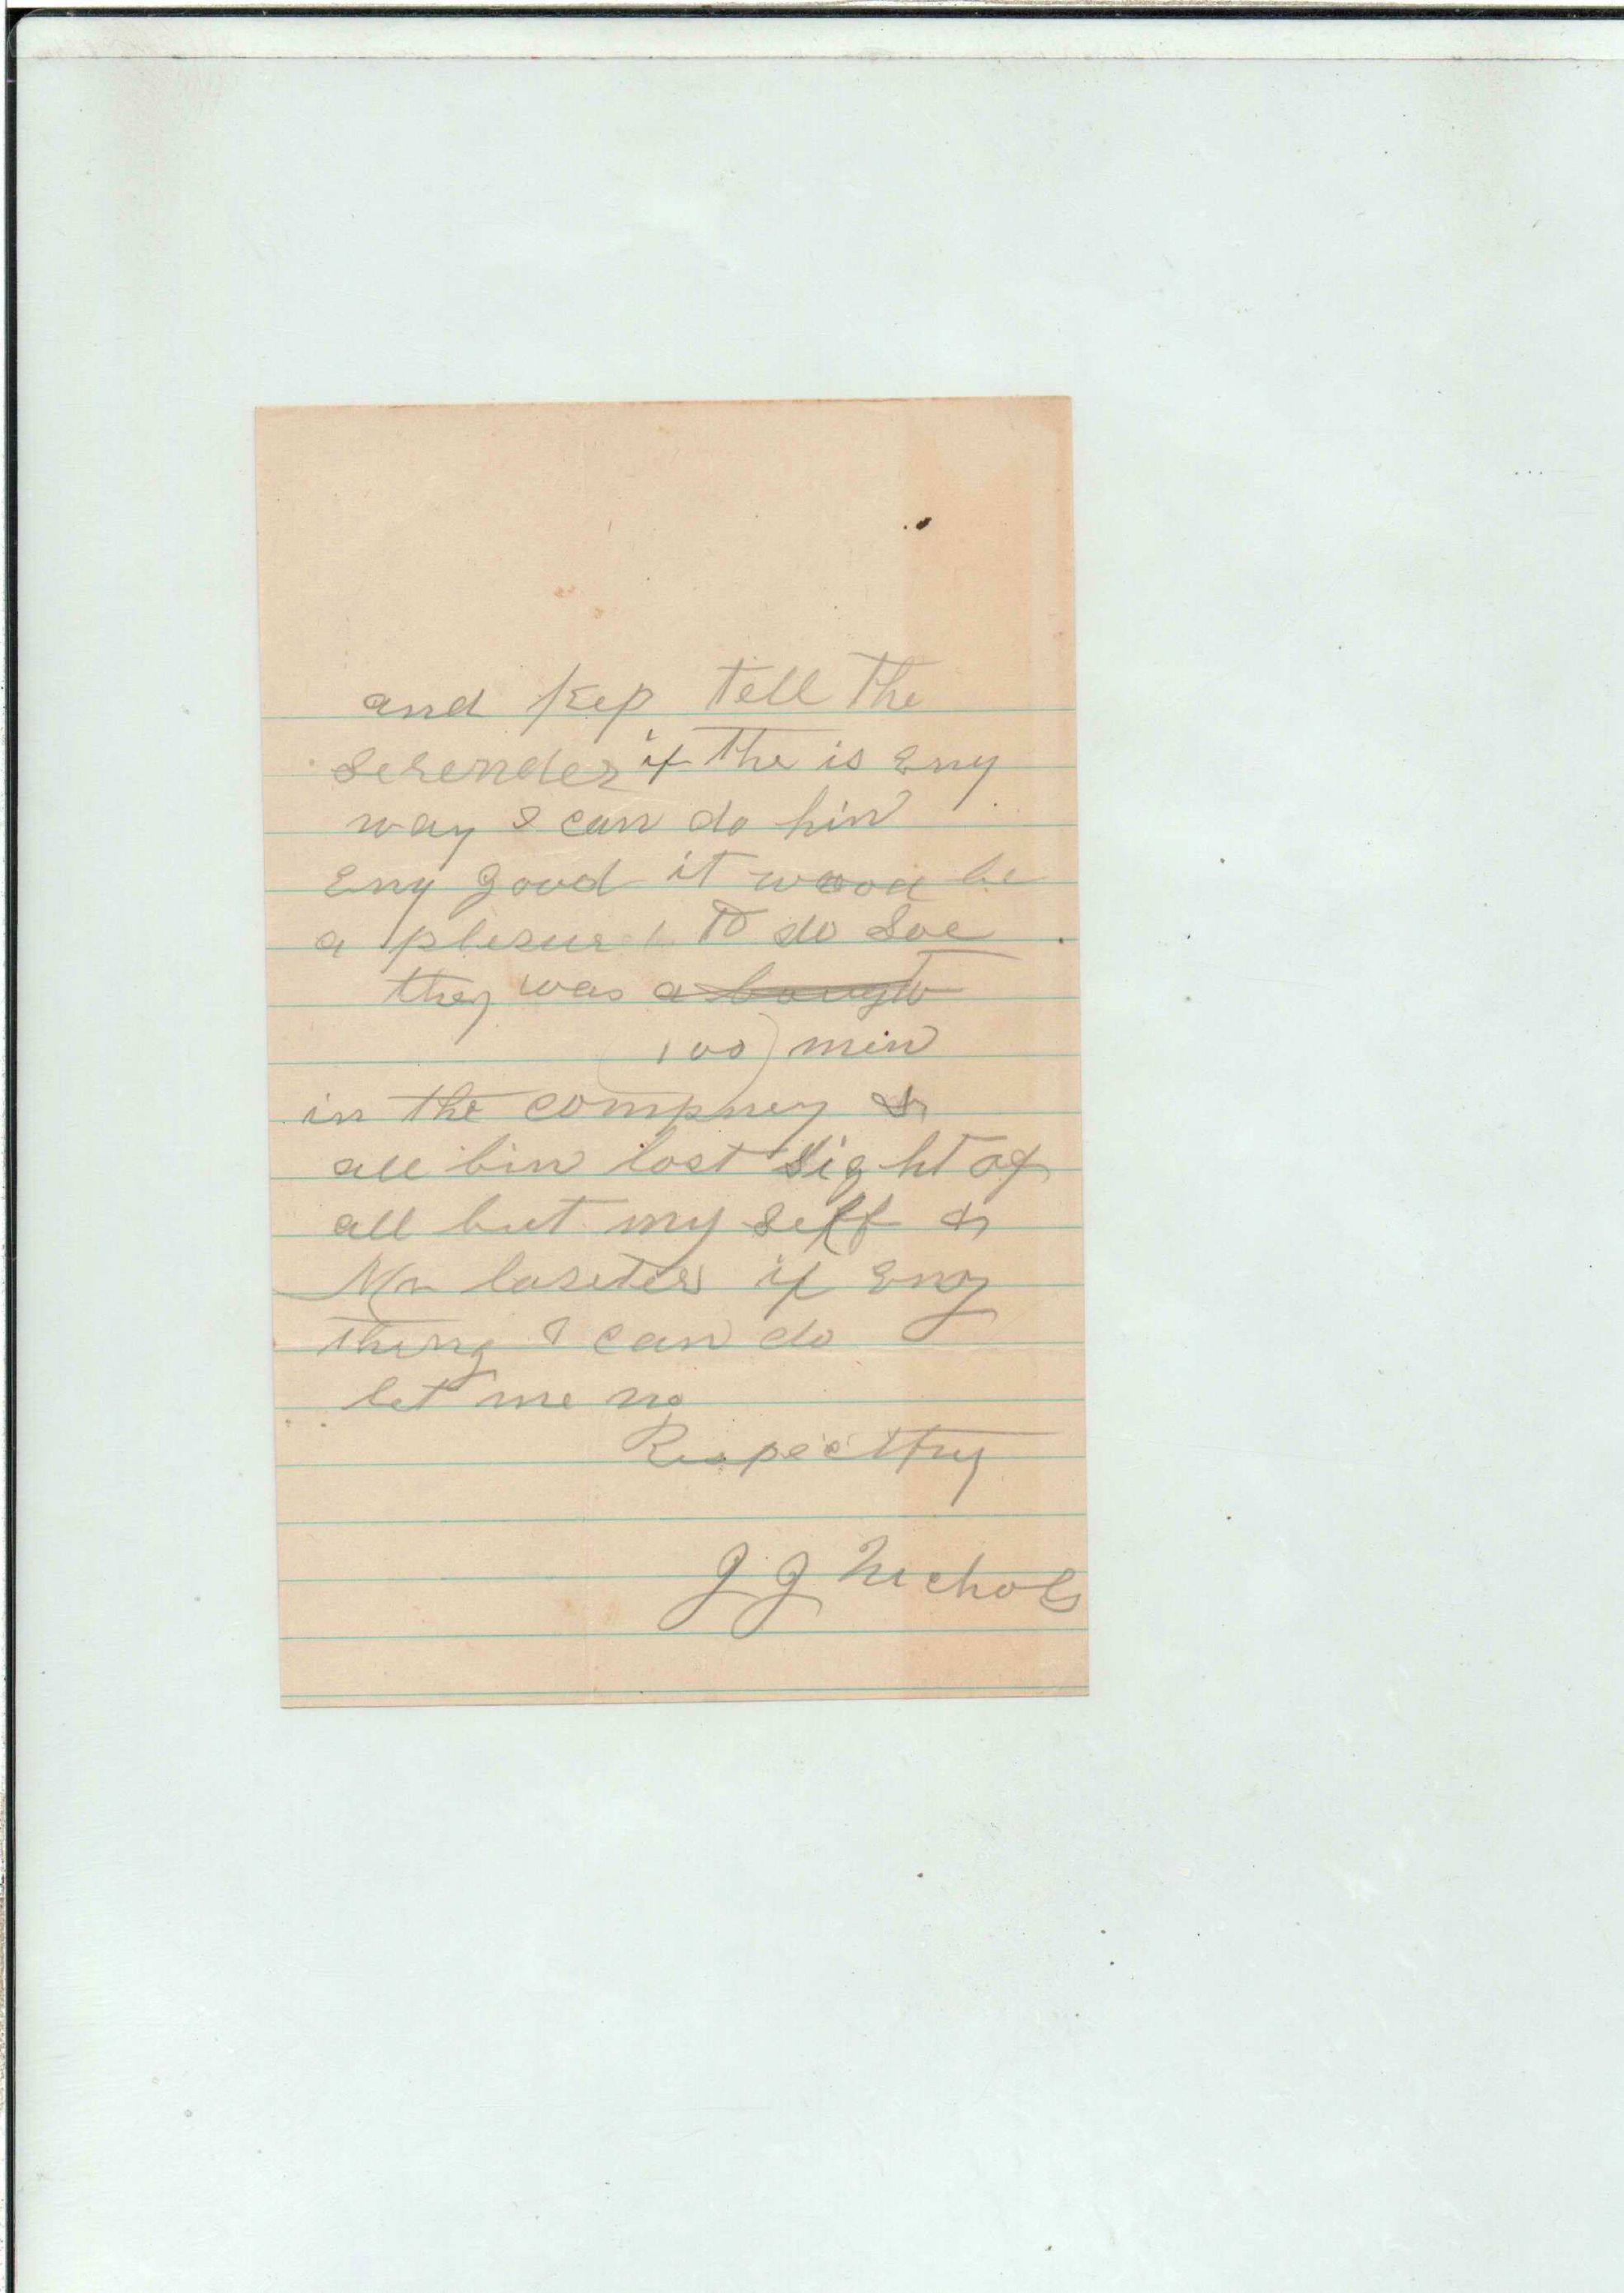 and Kep tell the
Serender if the is Eny
way I can do hin
Eny good it wood be
a plesure to do Soe
they was a bought
(100) min
in the compney &
all bin lost Sight of
all but my Self &
Mr laseter if Eny
thing I can do
let me no
J J Nichols